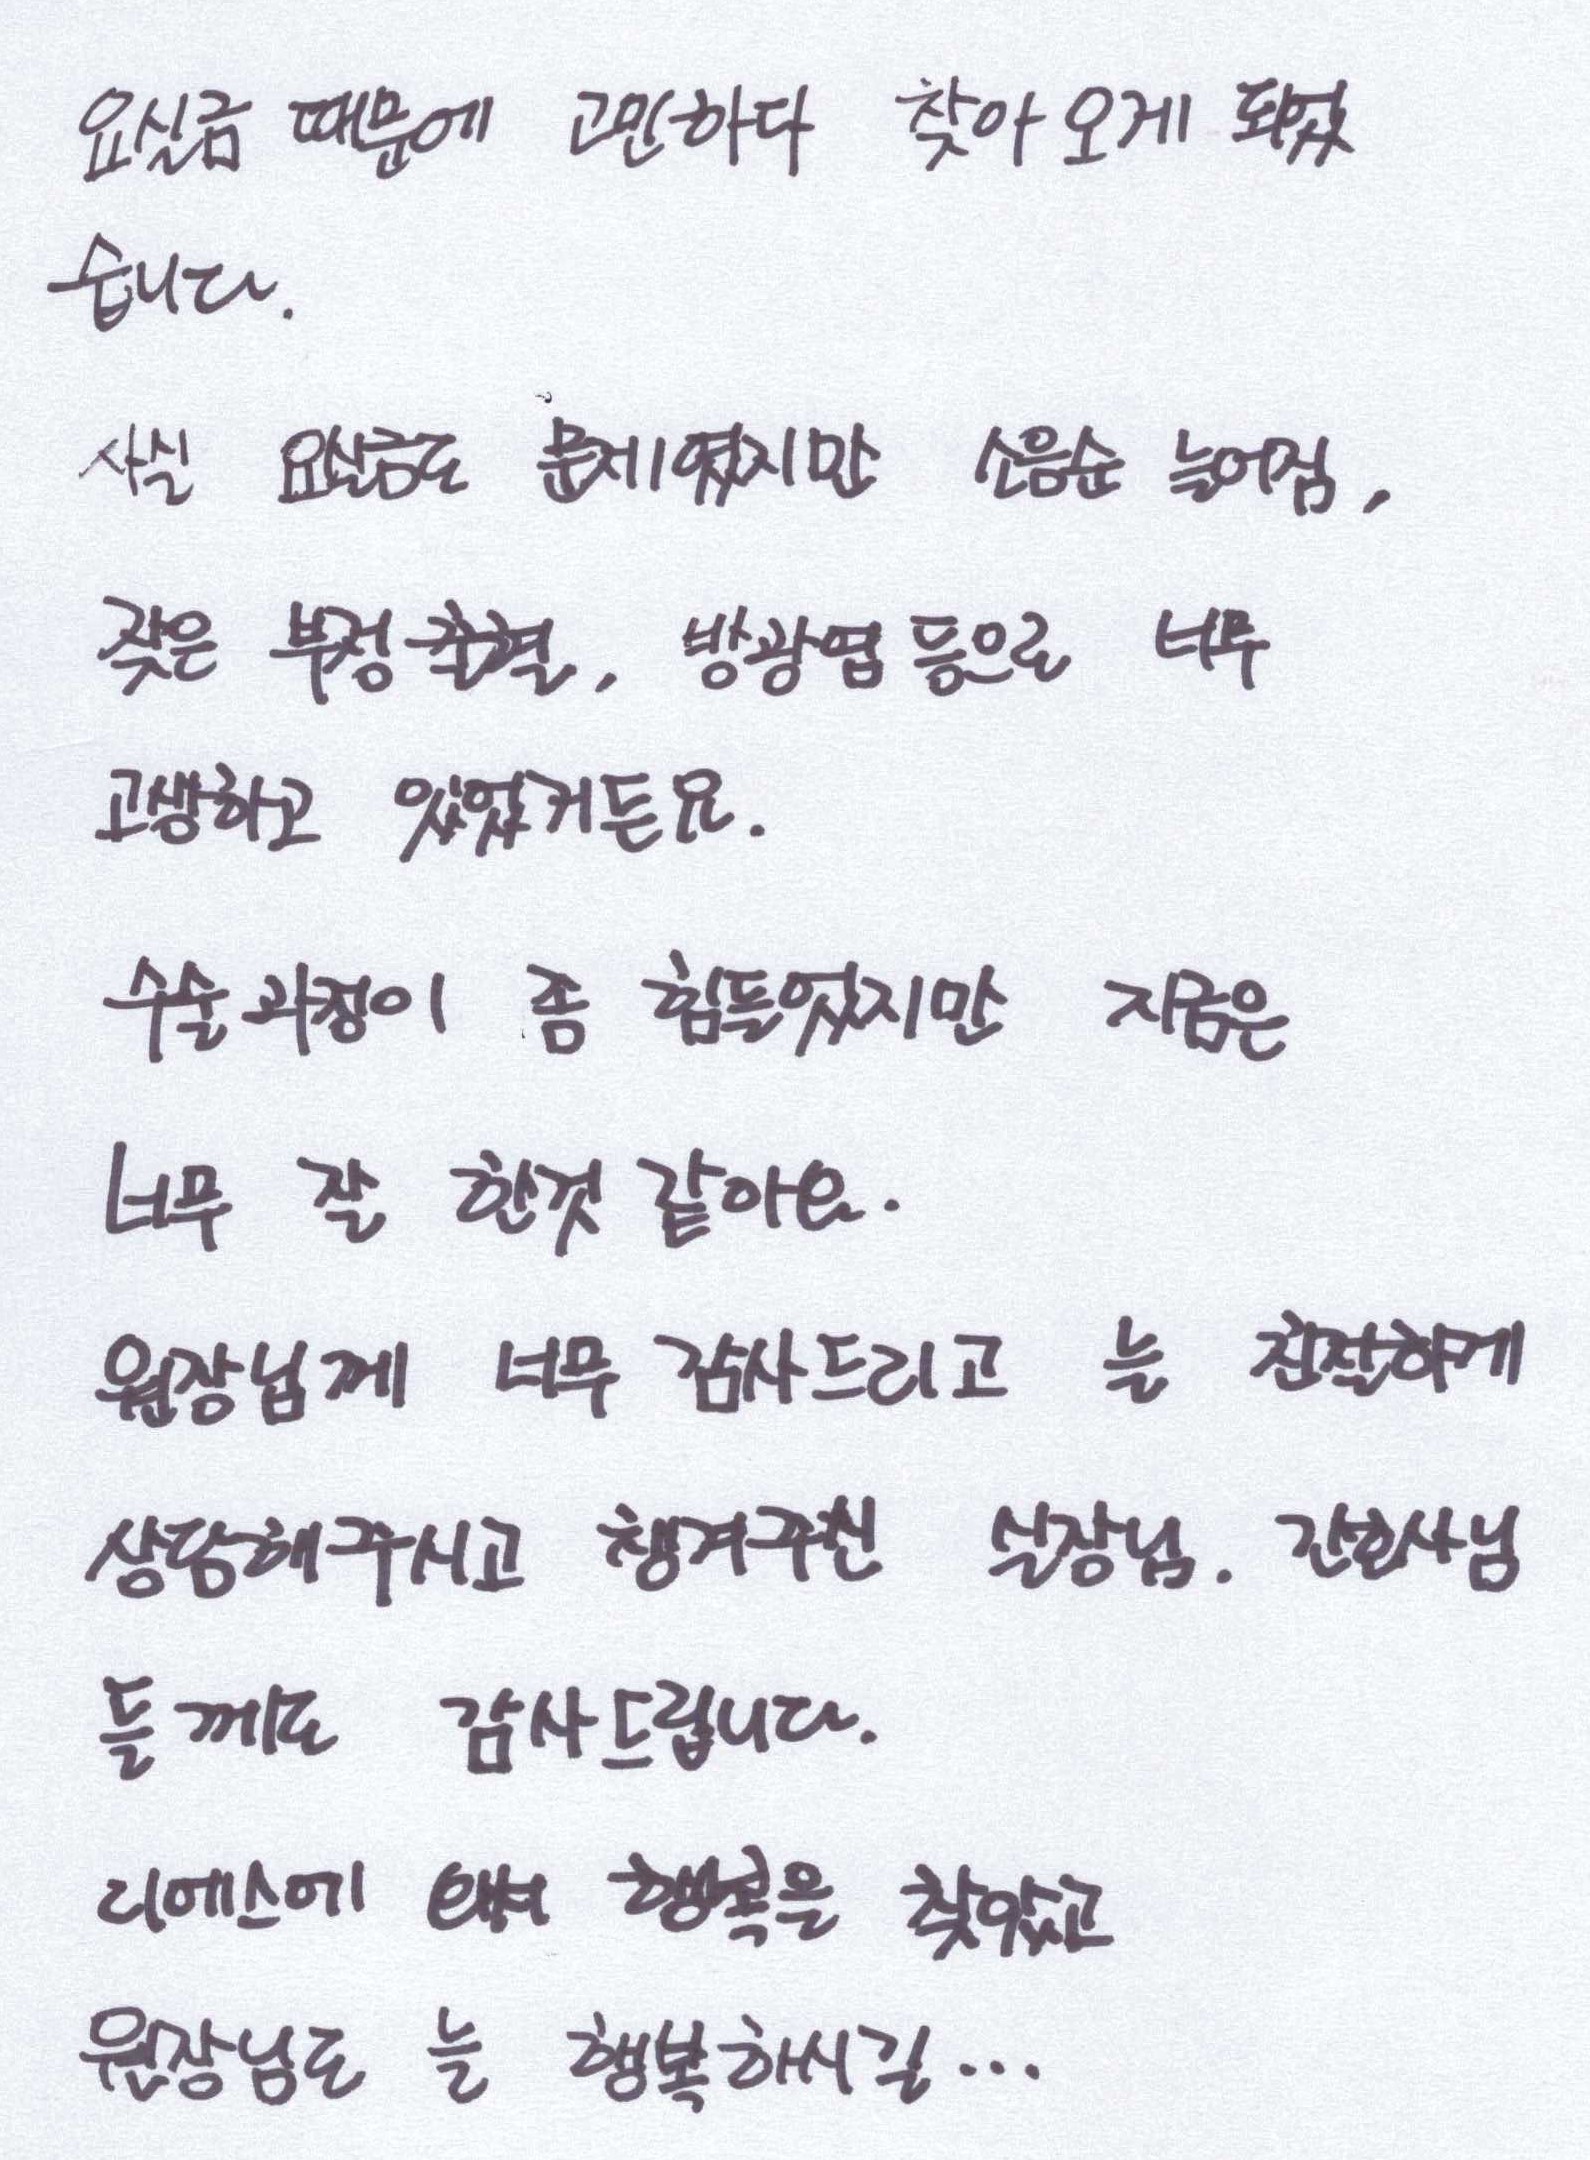 요실금 때문에 고민하다 찾아오게 되었
습니다.
사실 요실금도 문제였지만 소음순 늘어짐,
잦은 부정출혈, 방광염 등으로 너무
고생하고 있었거든요.
수술과정이 좀 힘들었지만 지금은
너무 잘 한것 같아요.
원장님께 너무 감사드리고 늘 친절하게
상담해주시고 챙겨주신 실장님. 간호사님
들께도 감사드립니다.
리에스에 와서 행복을 찾았고
원장님도 늘 행복하시길...